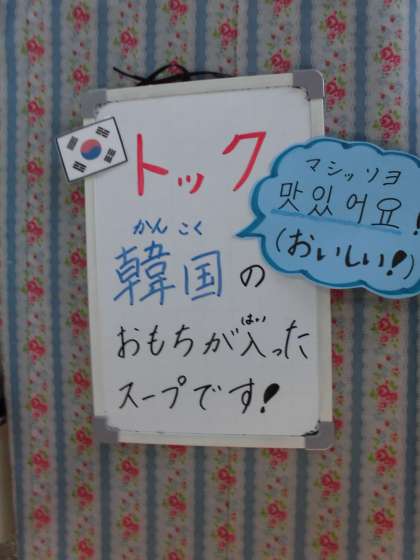 トック
かんこく
韓国の
おもちが入った
はい
スープです!
マシッソヨ
맛있어요!
(おいしい!)